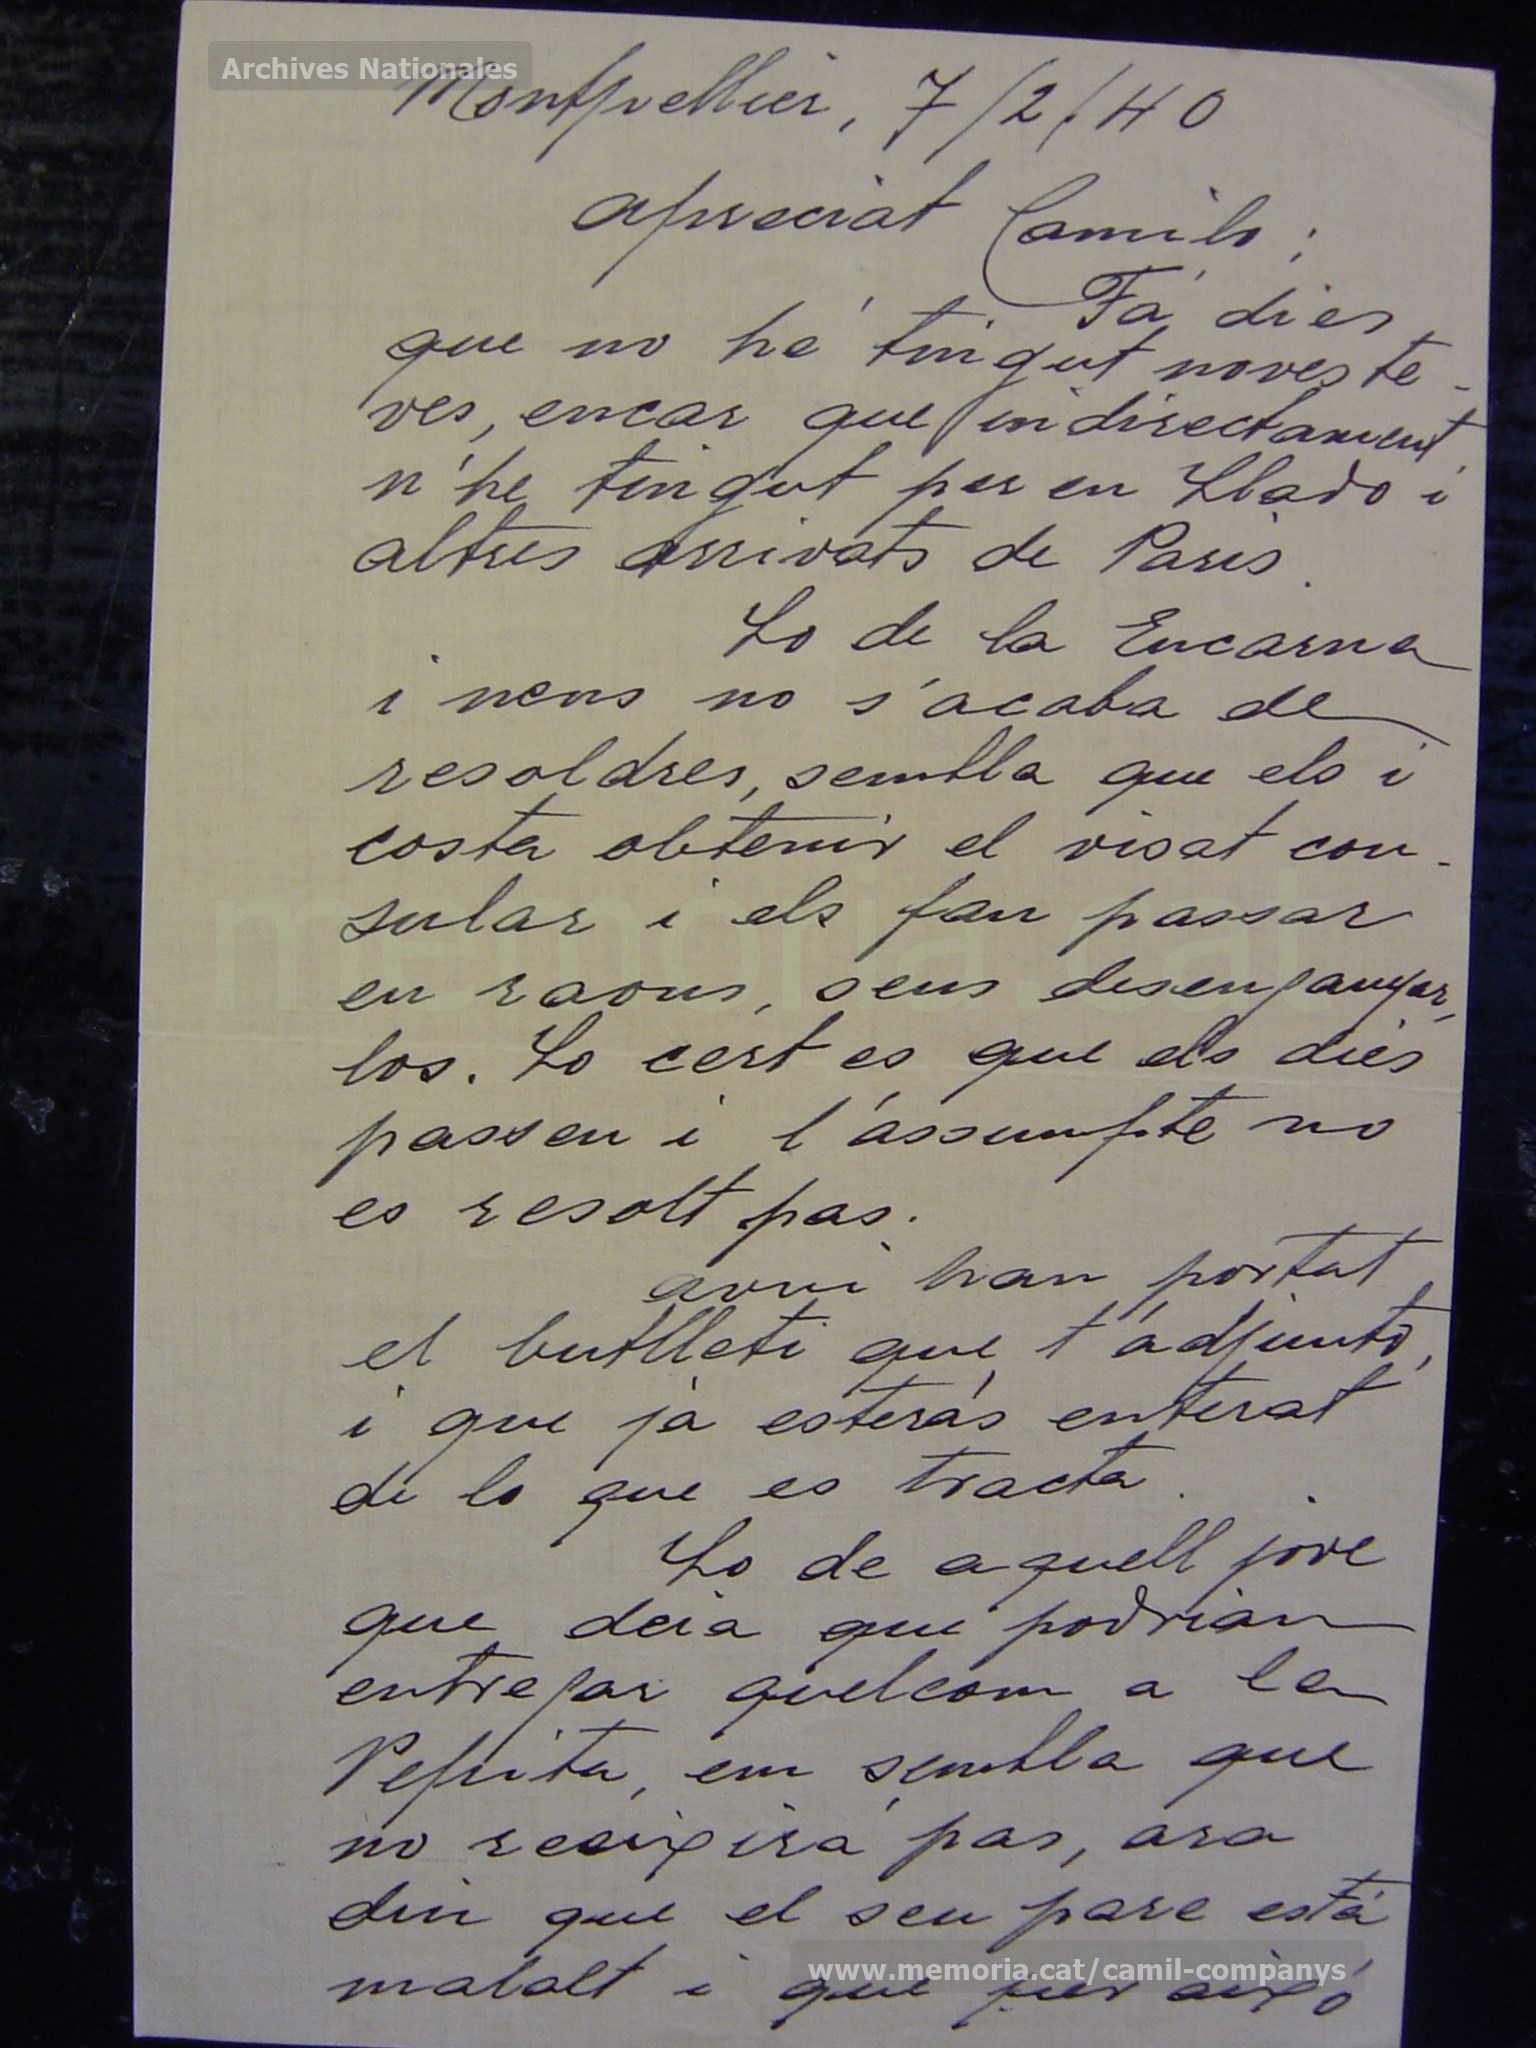 Archives Nationales
Montpellier, 7/2/40
apreciat Camilo;
Fá dies
que no hé tingut noves te-
ves, encar que indirectament
n'he tingut per en Llado i
altres arrivats de Paris.
Lo de la Encarna
i nens no s'acaba de
resoldres, sembla que els i
costa obtenir el visat con-
sular i els fan passar
en raons, sens desenganyar-
los. Lo cert es que els dies
passen i l'assumpte no
es resolt pas.
avui han portat
el butlleti que t'adjunto,
i que jà esterás enterat
de lo que es tracta.
Lo de aquell jove
que deia que podrian
entregar quelcom a la
Pepita, em sembla que
no reeixirá pas, ara
diu que el seu pare está
malalt i que per aixó
memoria.cat
www.memoria.cat/camil-companys